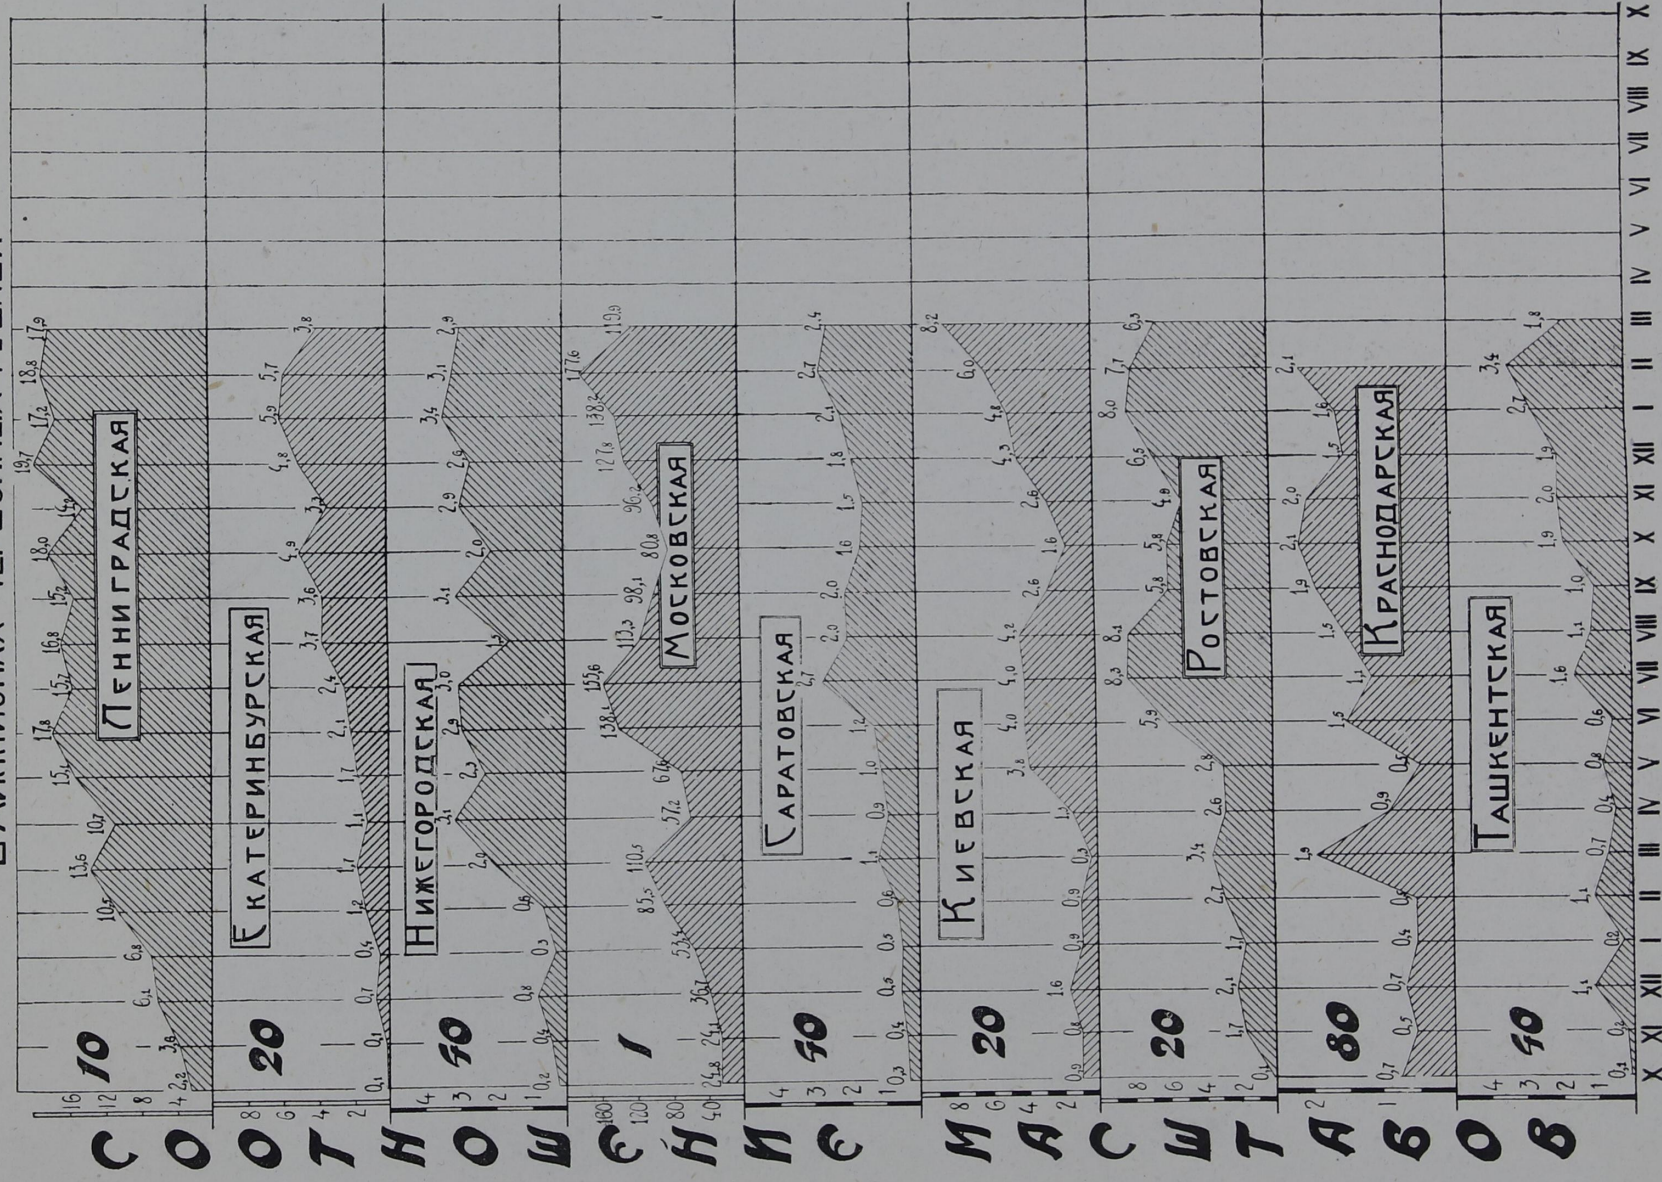 СООТНОШЕНИЕ МАСШТАБОВ
10
16
12
8
4
ЛЕННИГРАДСКАЯ
2,2 3,6 6,1 6,8 10,5 13,6 10,7 15,1 17,8 15,7 16,8 15,2 18,0 14,2 19,7 17,2 18,8 17,9
20
8
6
4
2
ЕКАТЕРИНБУРСКАЯ
0,1 0,1 0,7 0,4 1,2 1,7 1,1 1,7 2,1 2,4 3,7 3,6 4,9 3,3 4,8 5,9 5,7 3,8
40
4
3
2
1
НИЖЕГОРОДСКАЯ
0,2 0,4 0,8 0,3 0,6 2,0 3,1 2,3 2,9 3,0 3,1 2,0 2,9 2,9 3,4 3,1 2,9
1
160
120
80
40
МОСКОВСКАЯ
24,8 24,1 36,7 53,4 85,5 110,5 57,2 67,6 138,1 155,6 113,3 98,1 80,8 96,2 127,8 138,2 177,6 119,9
40
4
3
2
1
САРАТОВСКАЯ
0,3 0,4 0,5 0,5 0,6 1,1 0,9 1,0 1,2 2,7 2,0 2,0 1,6 1,5 1,8 2,1 2,7 2,4
20
8
6
4
2
КИЕВСКАЯ
0,9 0,8 1,6 0,9 0,9 0,3 3,8 4,0 4,0 4,2 2,6 1,6 2,6 4,3 4,8 6,0 8,2
20
8
6
4
2
РОСТОВСКАЯ
0,1 1,7 2,1 1,7 2,7 3,4 2,6 2,8 5,9 8,3 8,1 5,8 5,8 4,8 6,5 8,0 7,7 6,3
80
2
1
КРАСНОДАРСКАЯ
0,7 0,5 0,7 0,4 1,9 0,9 0,6 1,5 1,1 1,5 1,9 2,1 2,0 1,5 1,6 2,1
40
4
3
2
1
ТАШКЕНТСКАЯ
0,1 0,2 1,1 0,2 1,1 0,7 0,4 0,8 0,6 1,6 1,1 1,0 1,9 2,0 1,9 2,7 3,4 1,8
X XI XII I II III IV V VI VII VIII IX X XI XII I II III IV V VI VII VIII IX X